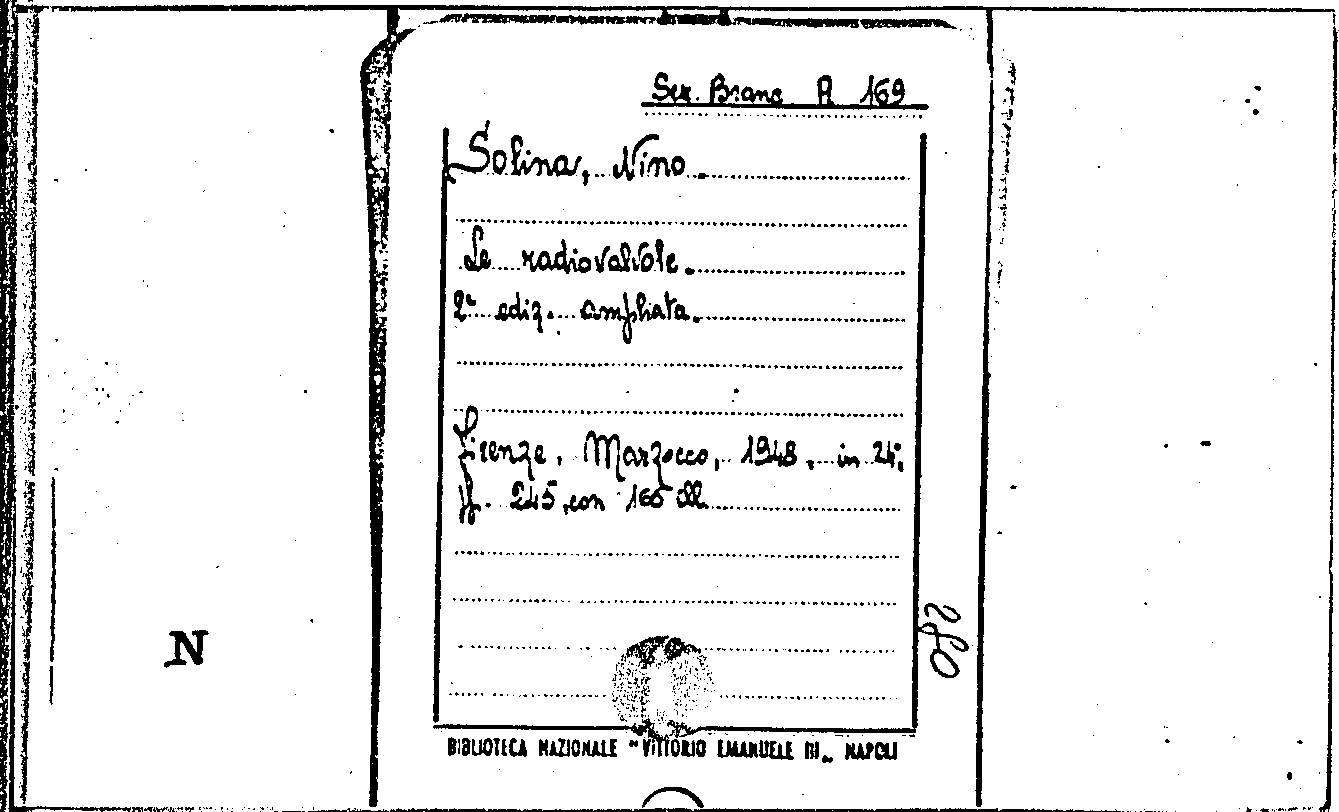 Sez. Branc A 169
Solina, Nino.
Le radiovalvole.
2ª ediz. ampliata.
Firenze, Marzocco, 1948, in 24°,
pp. 245, con 166 ill.
280
N
BIBLIOTECA NAZIONALE "VITTORIO EMANUELE III„ NAPOLI